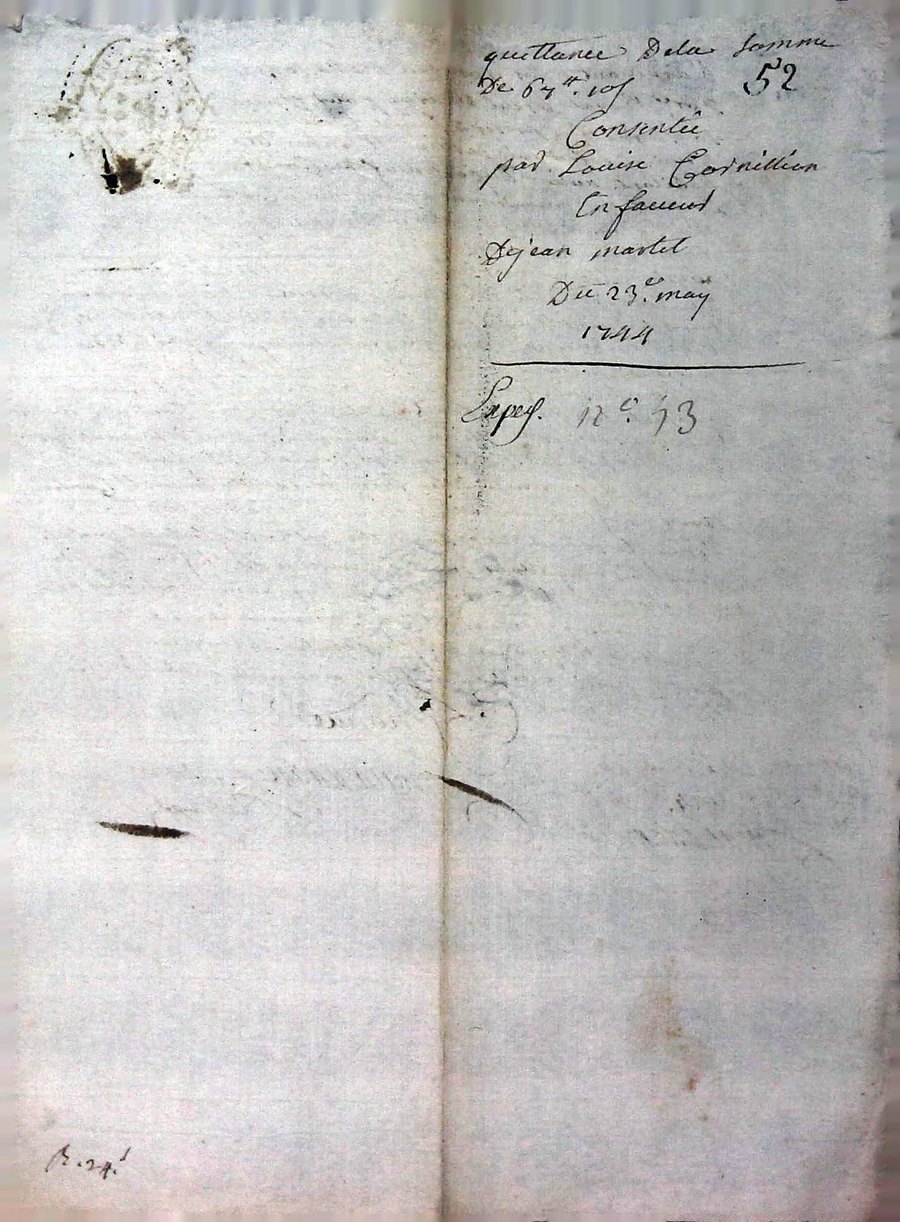 quittance Dela somme
52
De 67tt. 10s
Consentie
par Louise Cornillion
En faveur
De jean martel
Du 23e. may
1744
n° 13
R. 24s